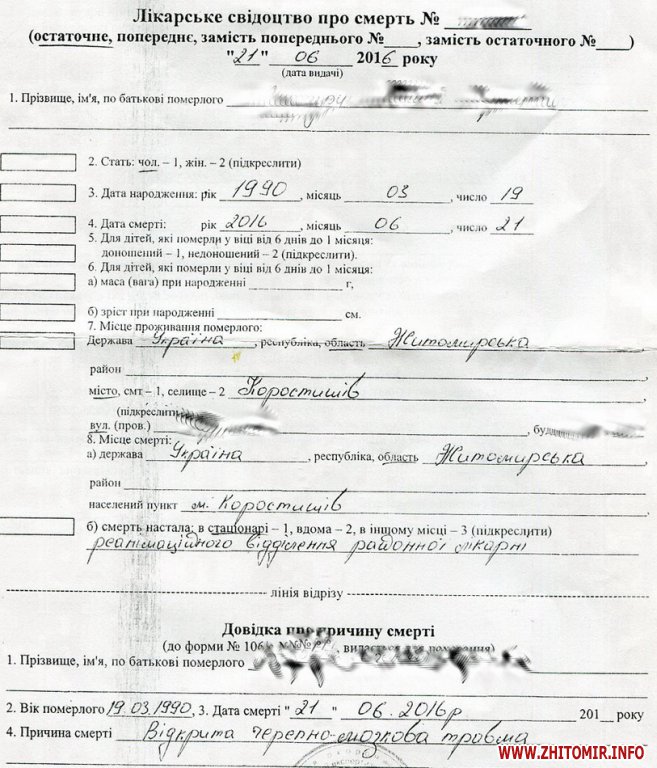 Лікарське свідоцтво про смерть №
(остаточне, попереднє, замість попереднього №___, замість остаточного №___)
"21" 06 2016 року
(дата видачі)
1. Прізвище, ім'я, по батькові померлого
2. Стать: чол. – 1, жін. – 2 (підкреслити)
3. Дата народження: рік 1990, місяць 03, число 19
4. Дата смерті: рік 2016, місяць 06, число 21
5. Для дітей, які померли у віці від 6 днів до 1 місяця:
доношений – 1, недоношений – 2 (підкреслити).
6. Для дітей, які померли у віці від 6 днів до 1 місяця:
а) маса (вага) при народженні ___ г,
б) зріст при народженні ___ см.
7. Місце проживання померлого:
Держава Україна, республіка, область Житомирська
район
місто, смт – 1, селище – 2 Коростишів
(підкреслити)
вул. (пров.)
8. Місце смерті:
а) держава Україна, республіка, область Житомирська
район
населений пункт м. Коростишів
б) смерть настала: в стаціонарі – 1, вдома – 2, в іншому місці – 3 (підкреслити)
реанімаційного відділення районної лікарні
лінія відрізу
Довідка про причину смерті
(до форми № 106
1. Прізвище, ім'я, по батькові померлого
2. Вік померлого 19.03.1990, 3. Дата смерті "21" 06.2016р 201__ року
4. Причина смерті Відкрита черепно-мозкова травма
WWW.ZHITOMIR.INFO